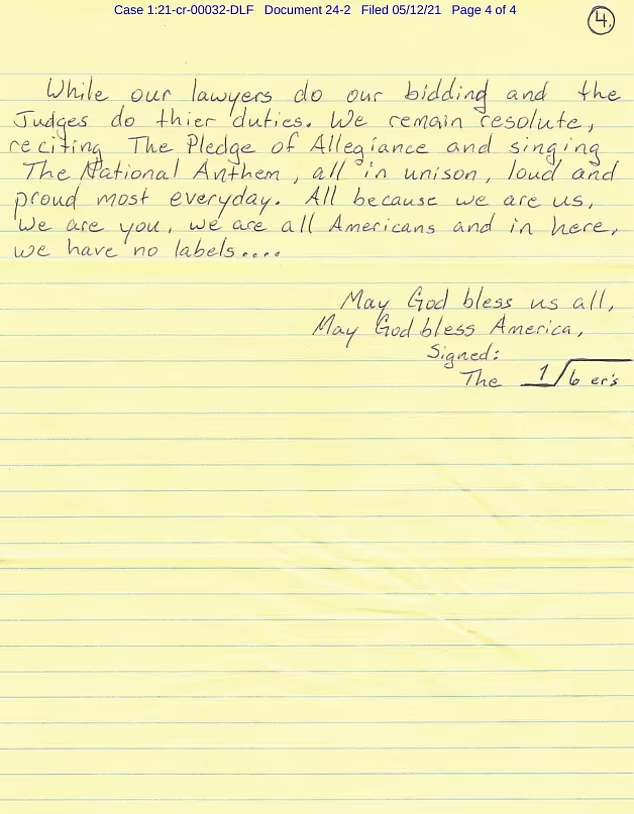 Case 1:21-cr-00032-DLF Document 24-2 Filed 05/12/21 Page 4 of 4
4.
While our lawyers do our bidding and the
Judges do thier duties. We remain resolute,
reciting The Pledge of Allegiance and singing
The National Anthem, all in unison, loud and
proud most everyday. All because we are us,
We are you, we are all Americans and in here,
we have no labels....
May God bless us all,
May God bless America,
Signed:
The 1/6 er's